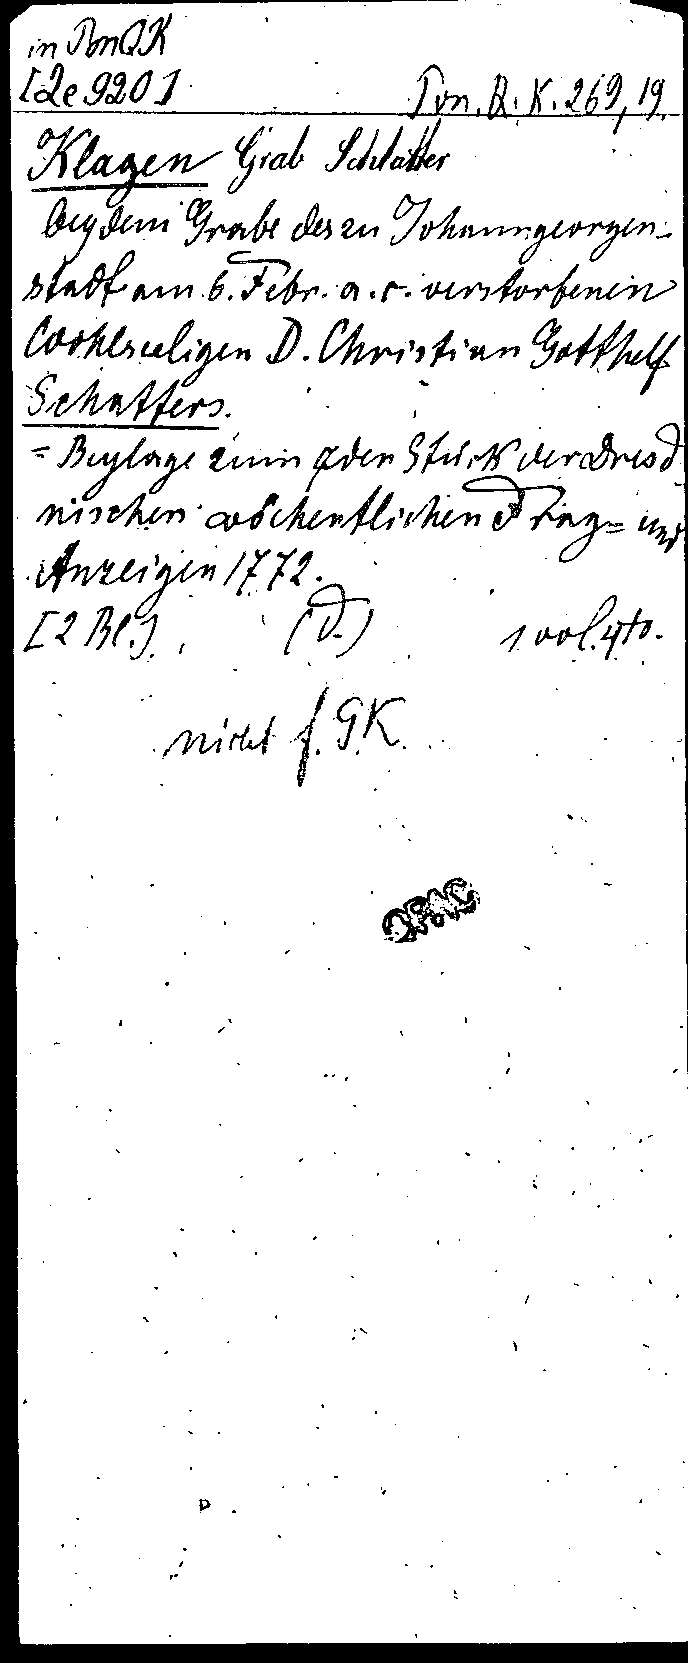 in PonQK
[2e 920]
Pon. Q. K. 269, 19.
Klagen Grab Schlatter
bey dem Grabe des zu Johanngeorgen-
stadt am 6. Febr. a. c. verstorbenen
Wohlseeligen D. Christian Gotthelf
Schatters.
= Beylage zum 9den Stück der Dresd-
nischen wöchentlichen Frag= und
Anzeigen 1772.
[2 Bl.] (d.) 1 vol. 4to.
nicht f. GK.